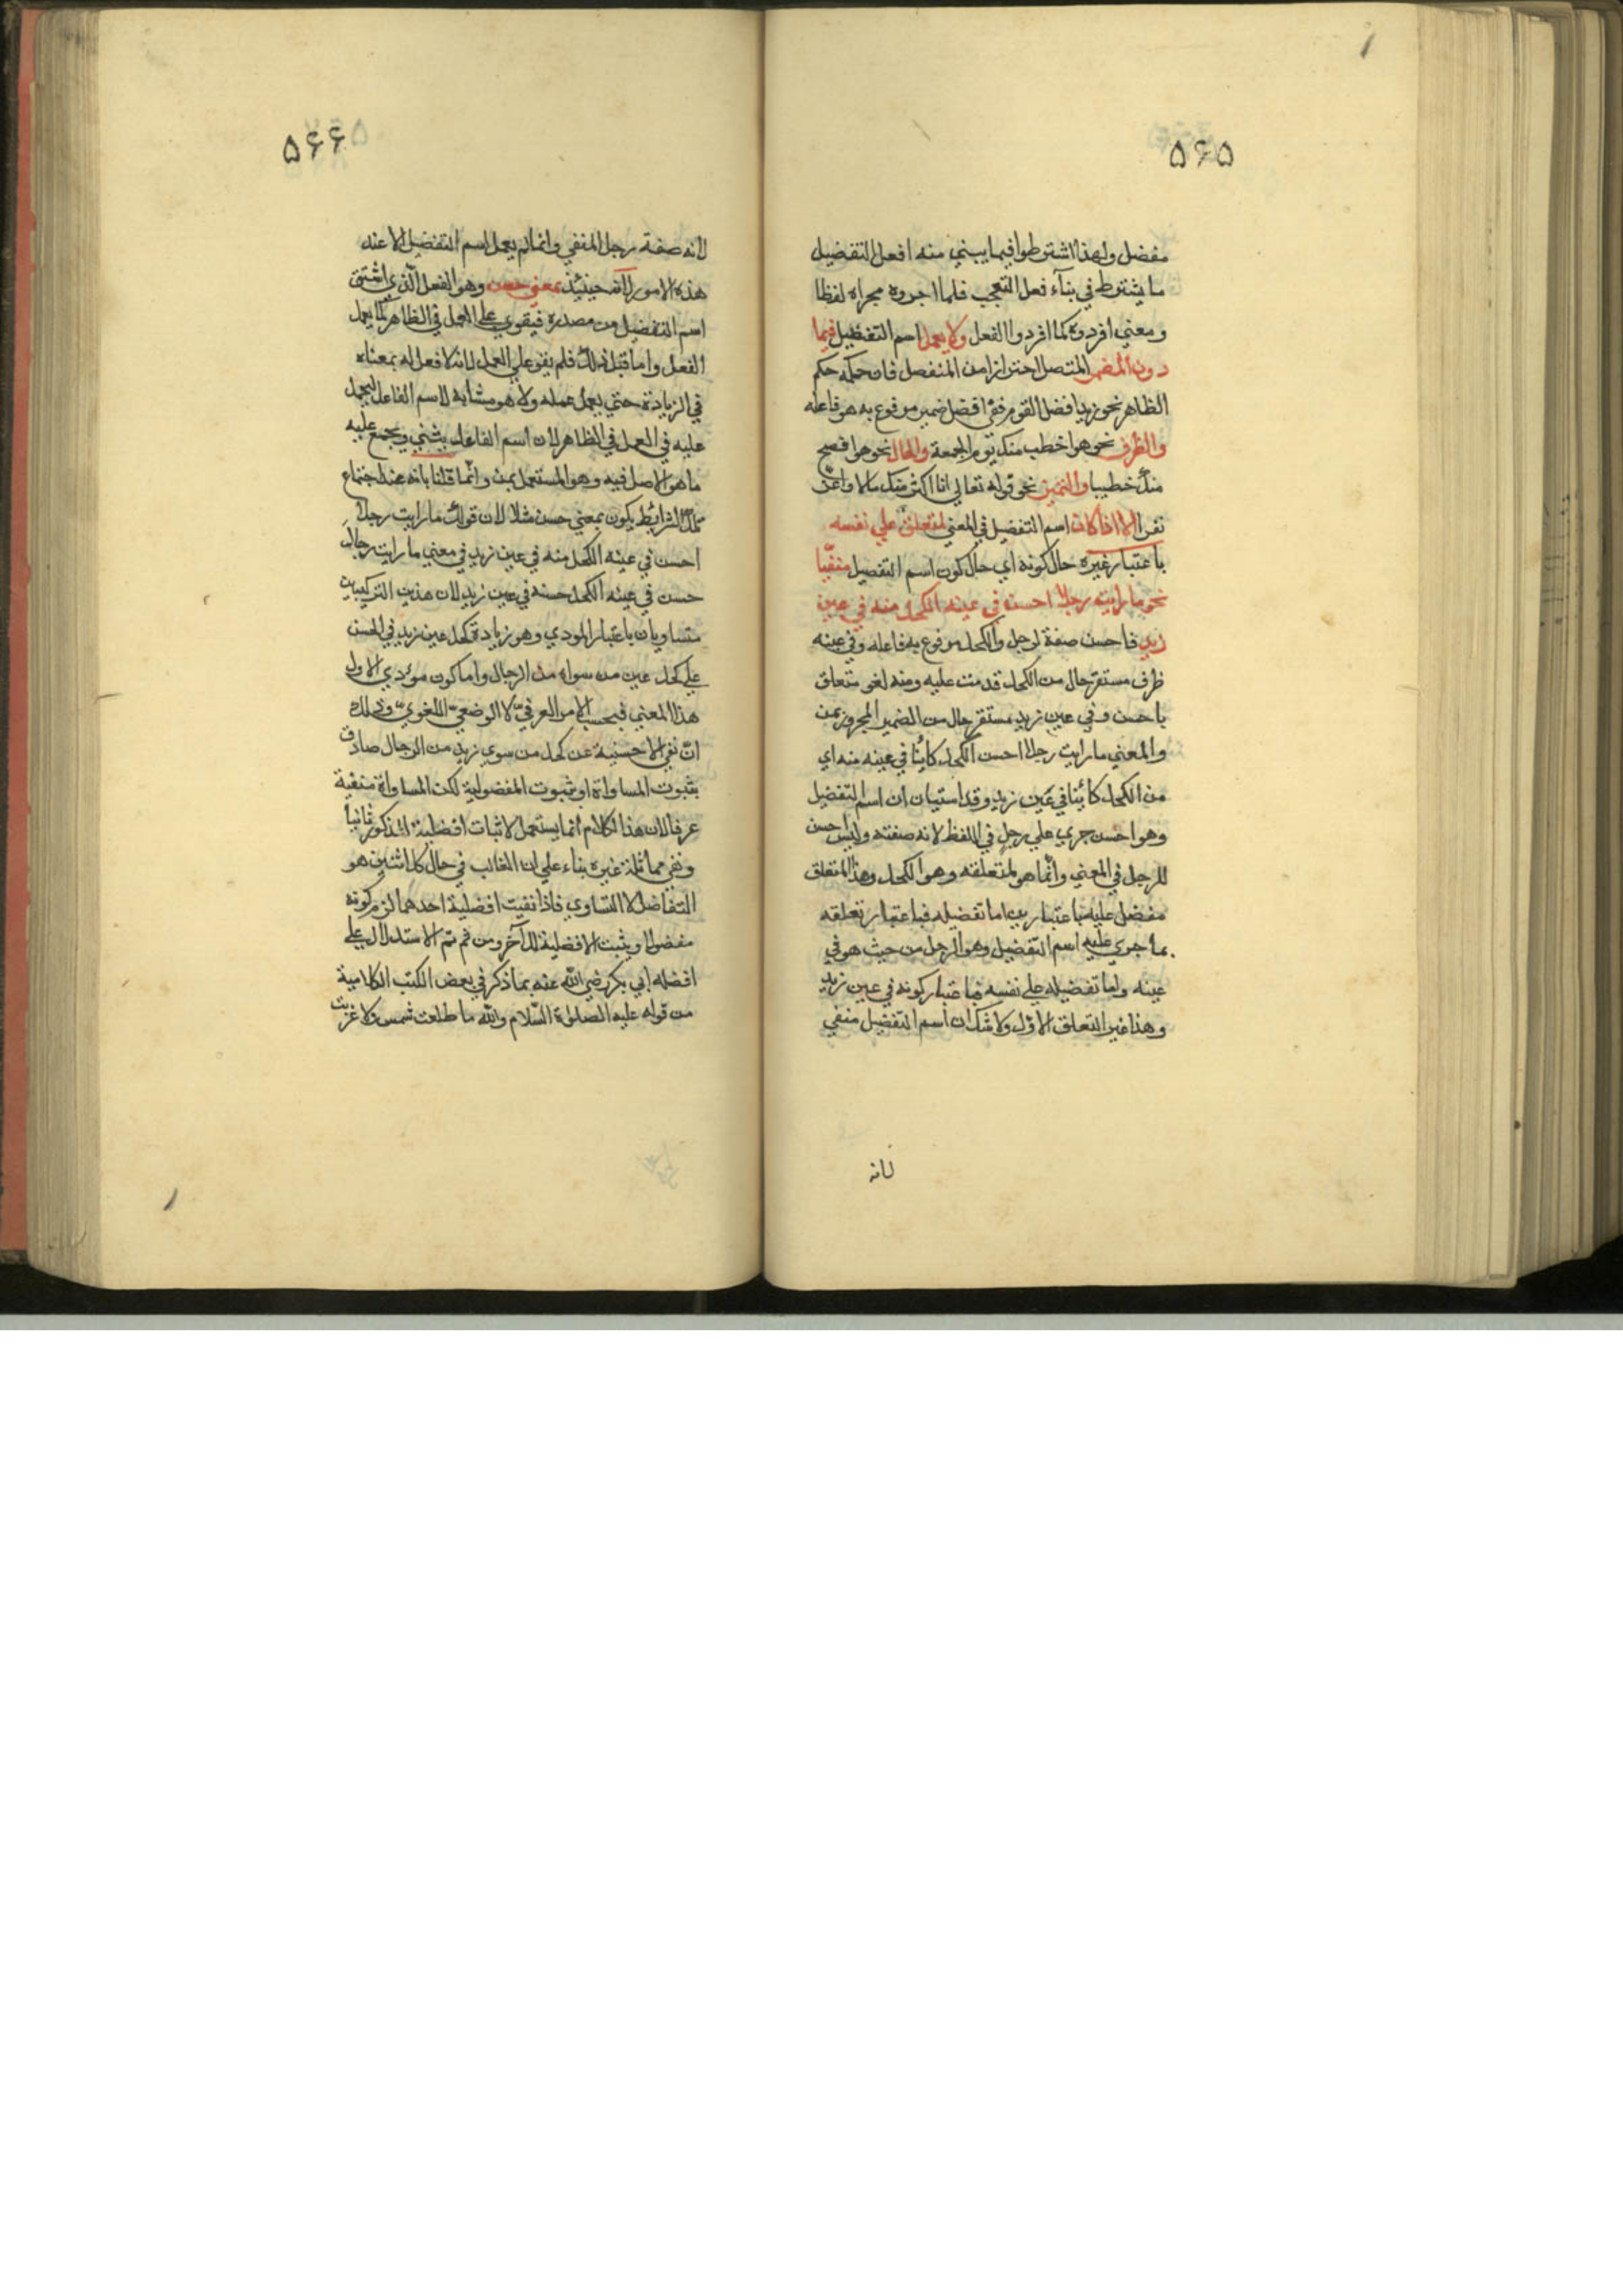 ۵۶۵
مفضل ولهذا اشترطوا فيما يبني منه افعل التفضيل
ما يشترط في بنآء فعل التعجب فلما اجروه مجراه لفظا
ومعني افردوه كما افردوا الفعل ولا يعمل اسم التفضيل فيما
دون المضمر المتصل احترازا من المنفصل فان حكمه حكم
الظاهر نحو زيد افضل القوم ففي افضل ضمير مرفوع به هو فاعله
والظرف نحو هو اخطب منك يوم الجمعة والحال نحو هو افصح
منك خطيبا والتميز نحو قوله تعالي انا اكثر منك مالا واعز
نفرا الا اذا كان اسم التفضيل في المعني لمتعلق علي نفسه
باعتبار غيره حال كونه اي حال كون اسم التفضيل منفيّا
نحو ما رايت رجلا احسن في عينه الكحل منه في عين
زيد فاحسن صفة لرجل والكحل مرفوع به فاعله وفي عينه
ظرف مستقر حال من الكحل قدمت عليه ومنه لغو متعلق
باحسن وفي عين زيد مستقر حال من الضمير المجرور بمن
والمعني ما رايت رجلا احسن الكحل كاينا في عينه منه اي
من الكحل كائنا في عين زيد وقد استبان ان اسم التفضيل
وهو احسن جري علي رجل في اللفظ لانه صفته وليس حسن
للرجل في المعني وانّما هو لمتعلقه وهو الكحل وهذا المتعلق
مفضل عليه باعتبارين اما تفضيله فباعتبار تعلقه
بما جري عليه اسم التفضيل وهو الرجل من حيث هو في
عينه واما تفضيله علي نفسه فباعتبار كونه في عين زيد
وهذا غير التعلق الاوّل ولا شك ان اسم التفضيل منفي
لانه
۵۶۶
لانه صفة رجل المنفي وانما لم يعمل اسم التفضيل الا عند
هذه الامور لانه حينئذ بمعني حسن وهو الفعل الّذي اشتق
اسم التفضيل من مصدره فيقوي علي العمل في الظاهر كما يعمل
الفعل واما قبل ذلك فلم يقو علي العمل لانه لا فعل له بمعناه
في الزيادة حتي يعمل عمله ولا هو مشابه لاسم الفاعل ليحمل
عليه في العمل في الظاهر لان اسم الفاعل يثني ويجمع عليه
ما هو الاصل فيه وهو المستعمل بمن وانّما قلنا بانه عند اجتماع
تلك الشرايط يكون بمعني حسن مثلا لان قولك ما رايت رجلا
احسن في عينه الكحل منه في عين زيد في معني ما رايت رجلا
حسن في عينه الكحل حسنه في عين زيد لان هذين التركيبين
متساويان باعتبار المودي وهو زيادة كحل عين زيد في الحسن
علي كحل عين من سواه من الرجال واما كون مؤدي الاول
هذا المعني فبحسب الامر العرفيّ لا الوضعيّ اللغويّ وذلك
انّ نفي الاحسنية عن كحل من سوي زيد من الرجال صادق
بثبوت المساواة او بثبوت المفضولية لكن المساواة منفية
عرفا لان هذا الكلام انما يستعمل لاثبات افضلية المذكور ثانيا
ونفي مماثلة غيره بناء علي ان الغالب في حال كل اثنين هو
التفاضل لا التساوي فاذا نفيت افضلية احدهما لزم كونه
مفضولا ويثبت الافضلية للآخر ومن ثم تم الاستدلال علي
افضله ابي بكر رضي الله عنه بما ذكر في بعض الكتب الكلامية
من قوله عليه الصلوة السّلام والله ما طلعت شمس ولا غربت